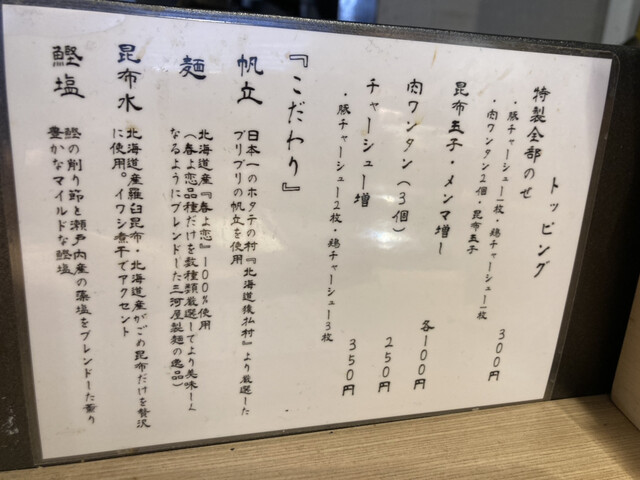 トッピング
特製全部のせ 300円
・豚チャーシュー一枚・鶏チャーシュー一枚
・肉ワンタン2個・昆布玉子
昆布玉子・メンマ増し 各100円
肉ワンタン(3個) 250円
チャーシュー増 350円
・豚チャーシュー2枚・鶏チャーシュー3枚
『こだわり』
帆立
日本一のホタテの村『北海道猿払村』より厳選した
プリプリの帆立を使用
麺
北海道産『春よ恋』100%使用
(春よ恋品種だけを数種類厳選してより美味しく
なるようにブレンドした三河屋製麺の逸品)
昆布水
北海道産羅臼昆布・北海道産がごめ昆布だけを贅沢
に使用。イワシ煮干でアクセント
鰹塩
鰹の削り節と瀬戸内産の藻塩をブレンドした香り
豊かなマイルドな鰹塩